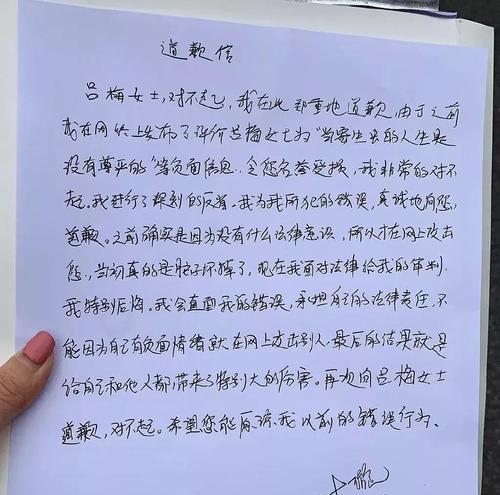 道歉信
吕梅女士,对不起,我在此郑重地道歉,由于之前
我在网络上发布了评价吕梅女士为"当寄生虫的人生是
没有尊严的"等负面信息,令您名誉受损,我非常的对不
起。我进行了深刻的反省。我为我所犯的错误,真诚地向您
道歉。之前确实是因为没有什么法律意识,所以才在网上攻击
您,当初真的是脑子坏掉了,现在我面对法律给我的审判
我特别后悔。我会直面我的错误,承担自己的法律责任,不
能因为自己有负面情绪就在网上攻击别人,最后的结果就是
给自己和他人都带来了特别大的伤害。再次向吕梅女士
道歉,对不起。希望您能原谅我以前的错误行为。